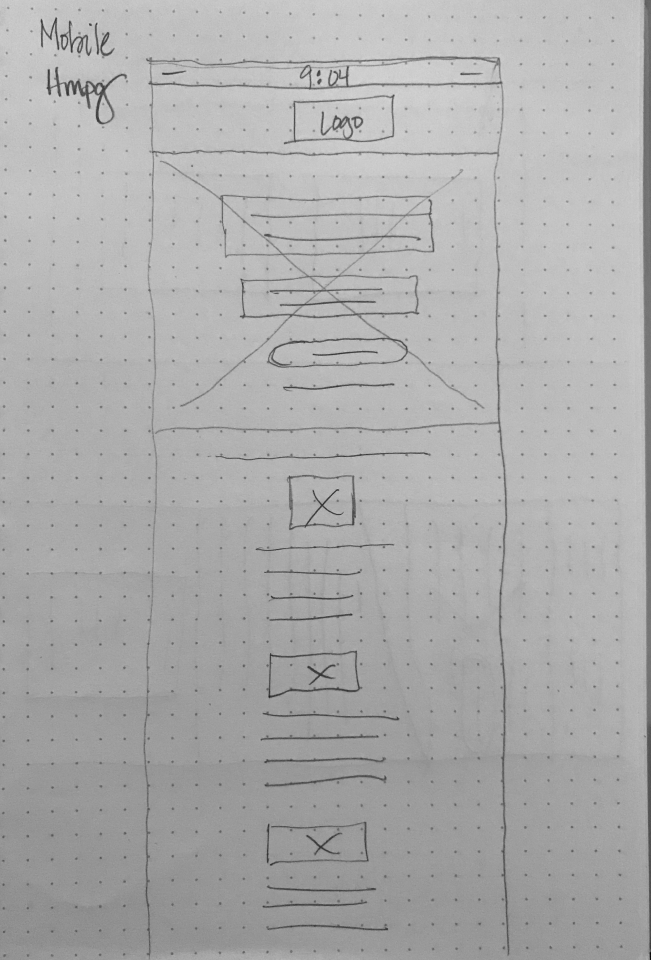 Mobile
Hmpg
9:04
Logo